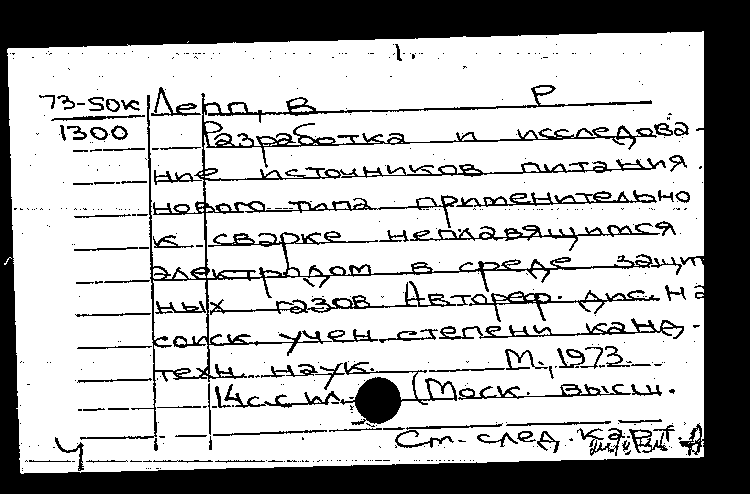 1.
73-50к Лепп, В Р
1300 Разработка и исследова-
ние источников питания
нового типа применительно
к сварке неплавящимся
электродом в среде защит
ных газов. Автореф. дис. на
соиск. учен. степени канд.
техн. наук. М., 1973.
14с. с ил. (Моск. высш.
См. след. карт